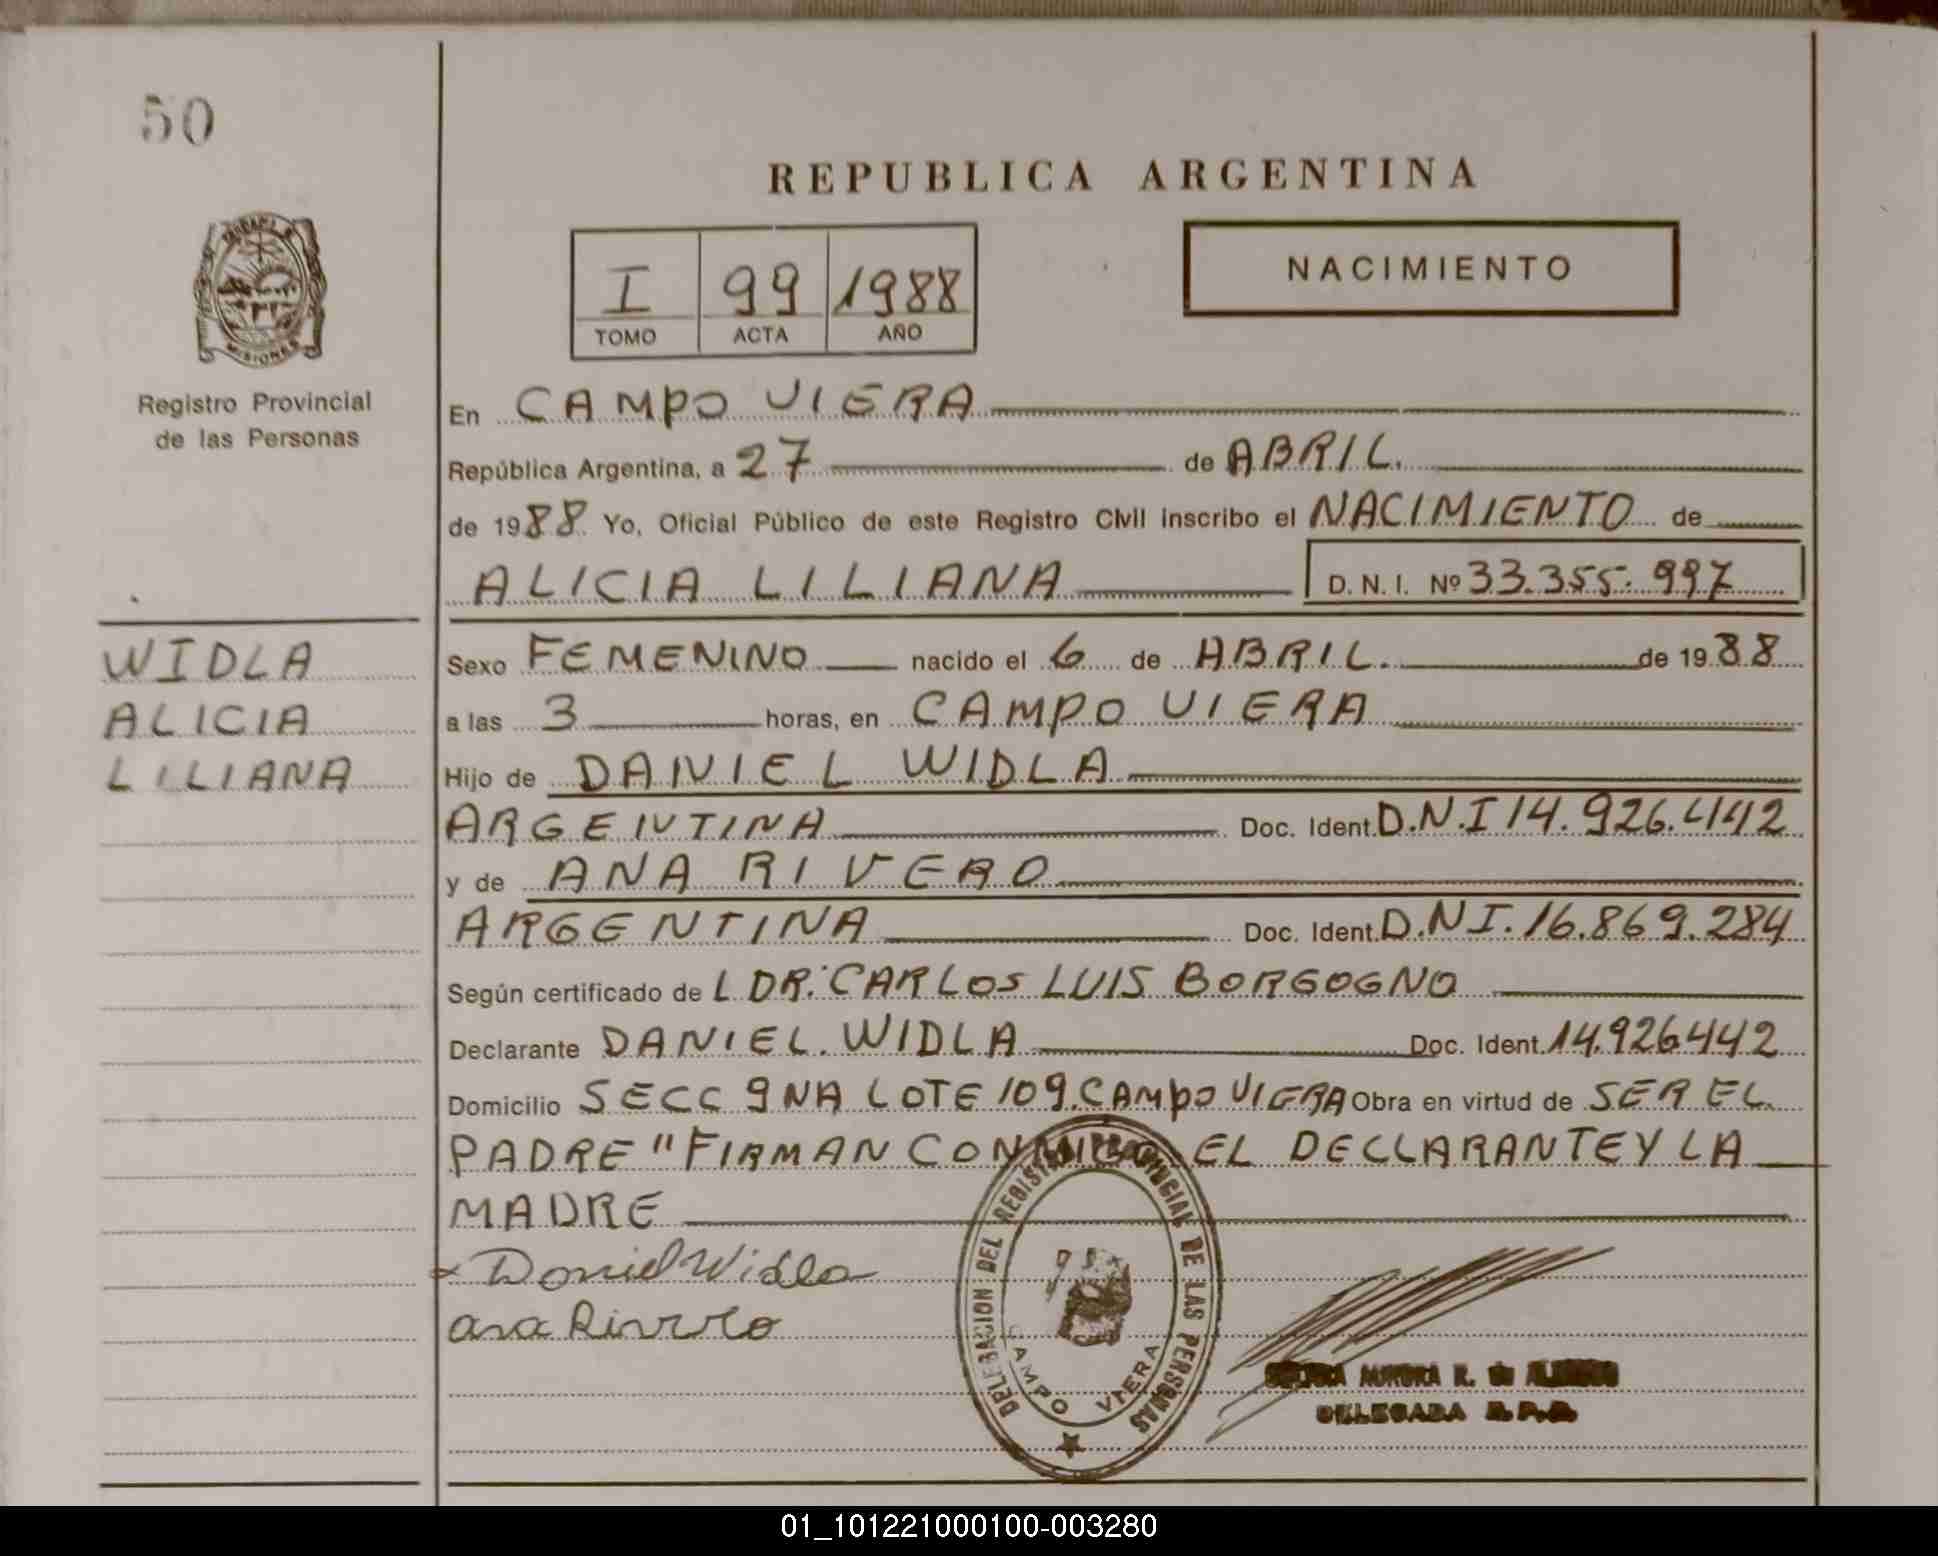 50
REPUBLICA ARGENTINA
I 99 1988
TOMO ACTA AÑO
NACIMIENTO
MISIONES
Registro Provincial
de las Personas
En CAMPO VIERA
República Argentina, a 27 de ABRIL.
de 1988 Yo, Oficial Público de este Registro Civil inscribo el NACIMIENTO de
ALICIA LILIANA D. N. I. Nº 33.355.997
WIDLA
ALICIA
LILIANA
Sexo FEMENINO nacido el 6 de ABRIL. de 1988
a las 3 horas, en CAMPO VIERA
Hijo de DANIEL WIDLA
ARGENTINA Doc. Ident. D.N.I 14.926.442
y de ANA RIVERO
ARGENTINA Doc. Ident. D.NI.16.869.284
Según certificado de L DR. CARLOS LUIS BORGOGNO
Declarante DANIEL. WIDLA Doc. Ident. 14.926442
Domicilio SECC 9NA LOTE 109.CAMPO VIERA Obra en virtud de SER EL
PADRE "FIRMAN CONMIGO EL DECLARANTE Y LA
MADRE
Daniel Widla
ana Rivero
DELEGACION DEL REGISTRO PROVINCIAL DE LAS PERSONAS
CAMPO VIERA
AURORA R. de
DELEGADA R.P.P.
01_101221000100-003280